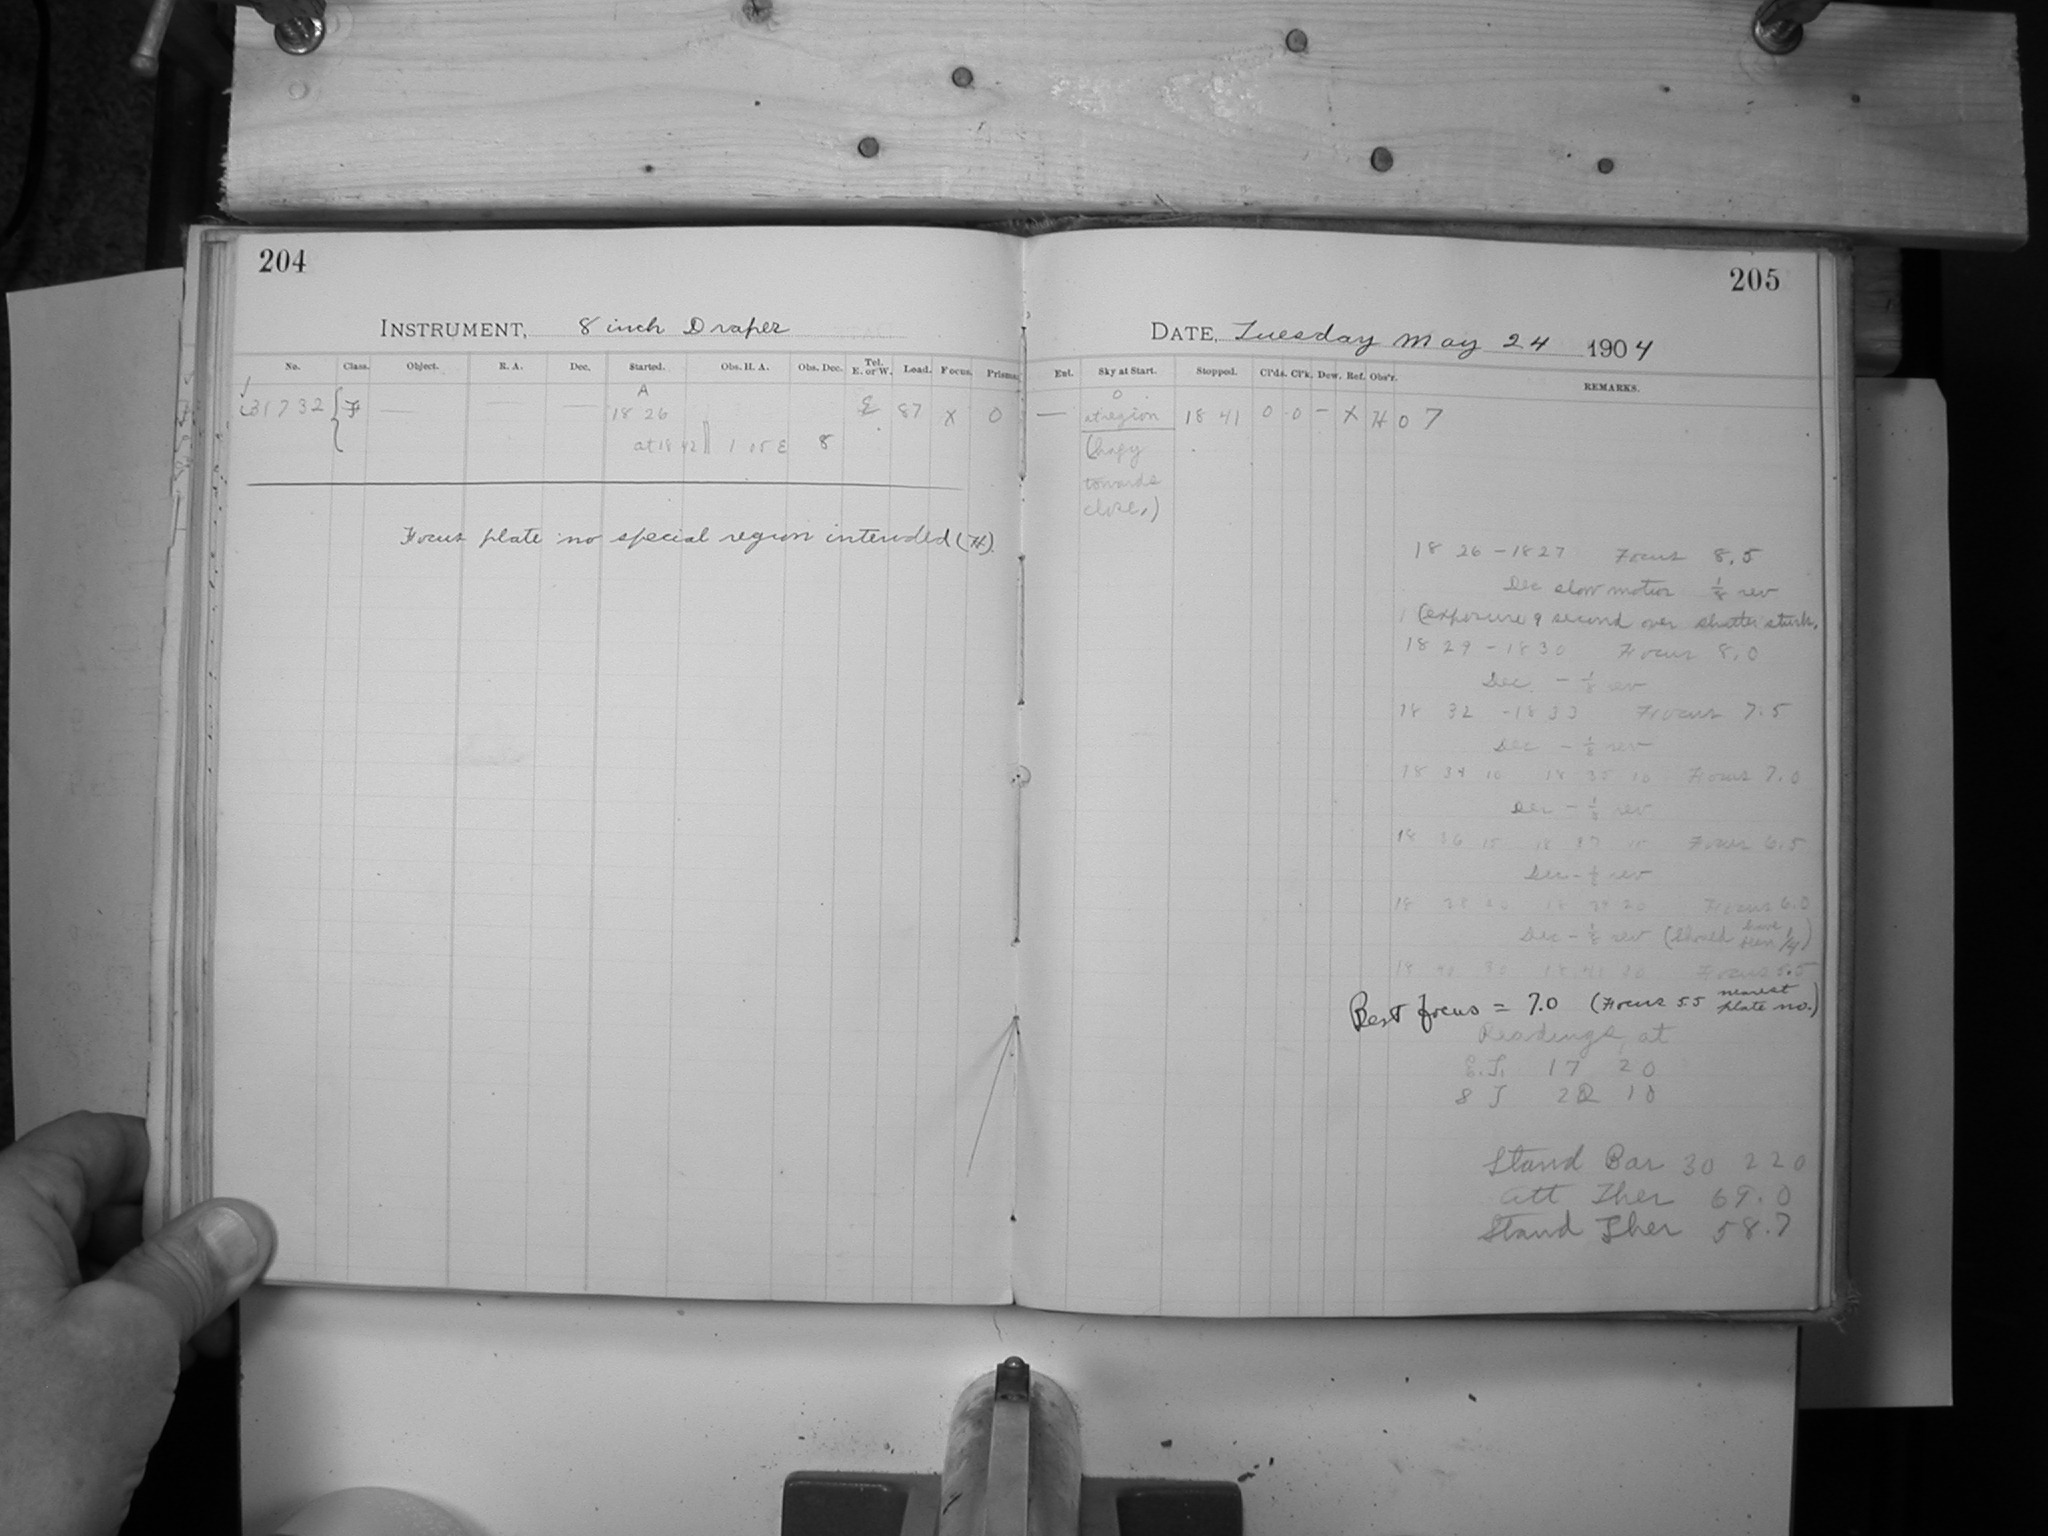 204
INSTRUMENT, 8 inch Draper
No. Class. Object. R. A. Dec. Started. Obs. H. A. Obs. Dec. Tel. E. or W. Load. Focus. Prisms.
A
31732 F — — — 18 26 E 87 X 0
at 18 42 1 05 E 8
Focus plate no special region intended (H).
205
DATE, Tuesday May 24 1904
Ent. Sky at Start. Stopped. Cl'ds. Cl'k. Dew. Ref. Obs'r. REMARKS.
0
— at region 18 41 0 0 – X H 0 7
(hazy
towards
close.)
18 26 – 18 27 Focus 8.5
Dec slow motion 1/8 rev
(exposure 9 second over shutter stuck.
18 29 – 18 30 Focus 8.0
Dec. – 1/8 rev
18 32 – 18 33 Focus 7.5
Dec – 1/8 rev
18 34 10 18 35 10 Focus 7.0
Dec – 1/8 rev
18 36 15 18 37 15 Focus 6.5
Dec – 1/8 rev
18 38 20 18 39 20 Focus 6.0
Dec – 1/8 rev (should have been 1/4)
18 40 30 18 41 30 Focus 5.5
Best focus = 7.0 (Focus 5.5 nearest plate no.)
Readings at
17 20
22 10
Stand Bar 30 220
Att Ther 69.0
Stand Ther 58.7